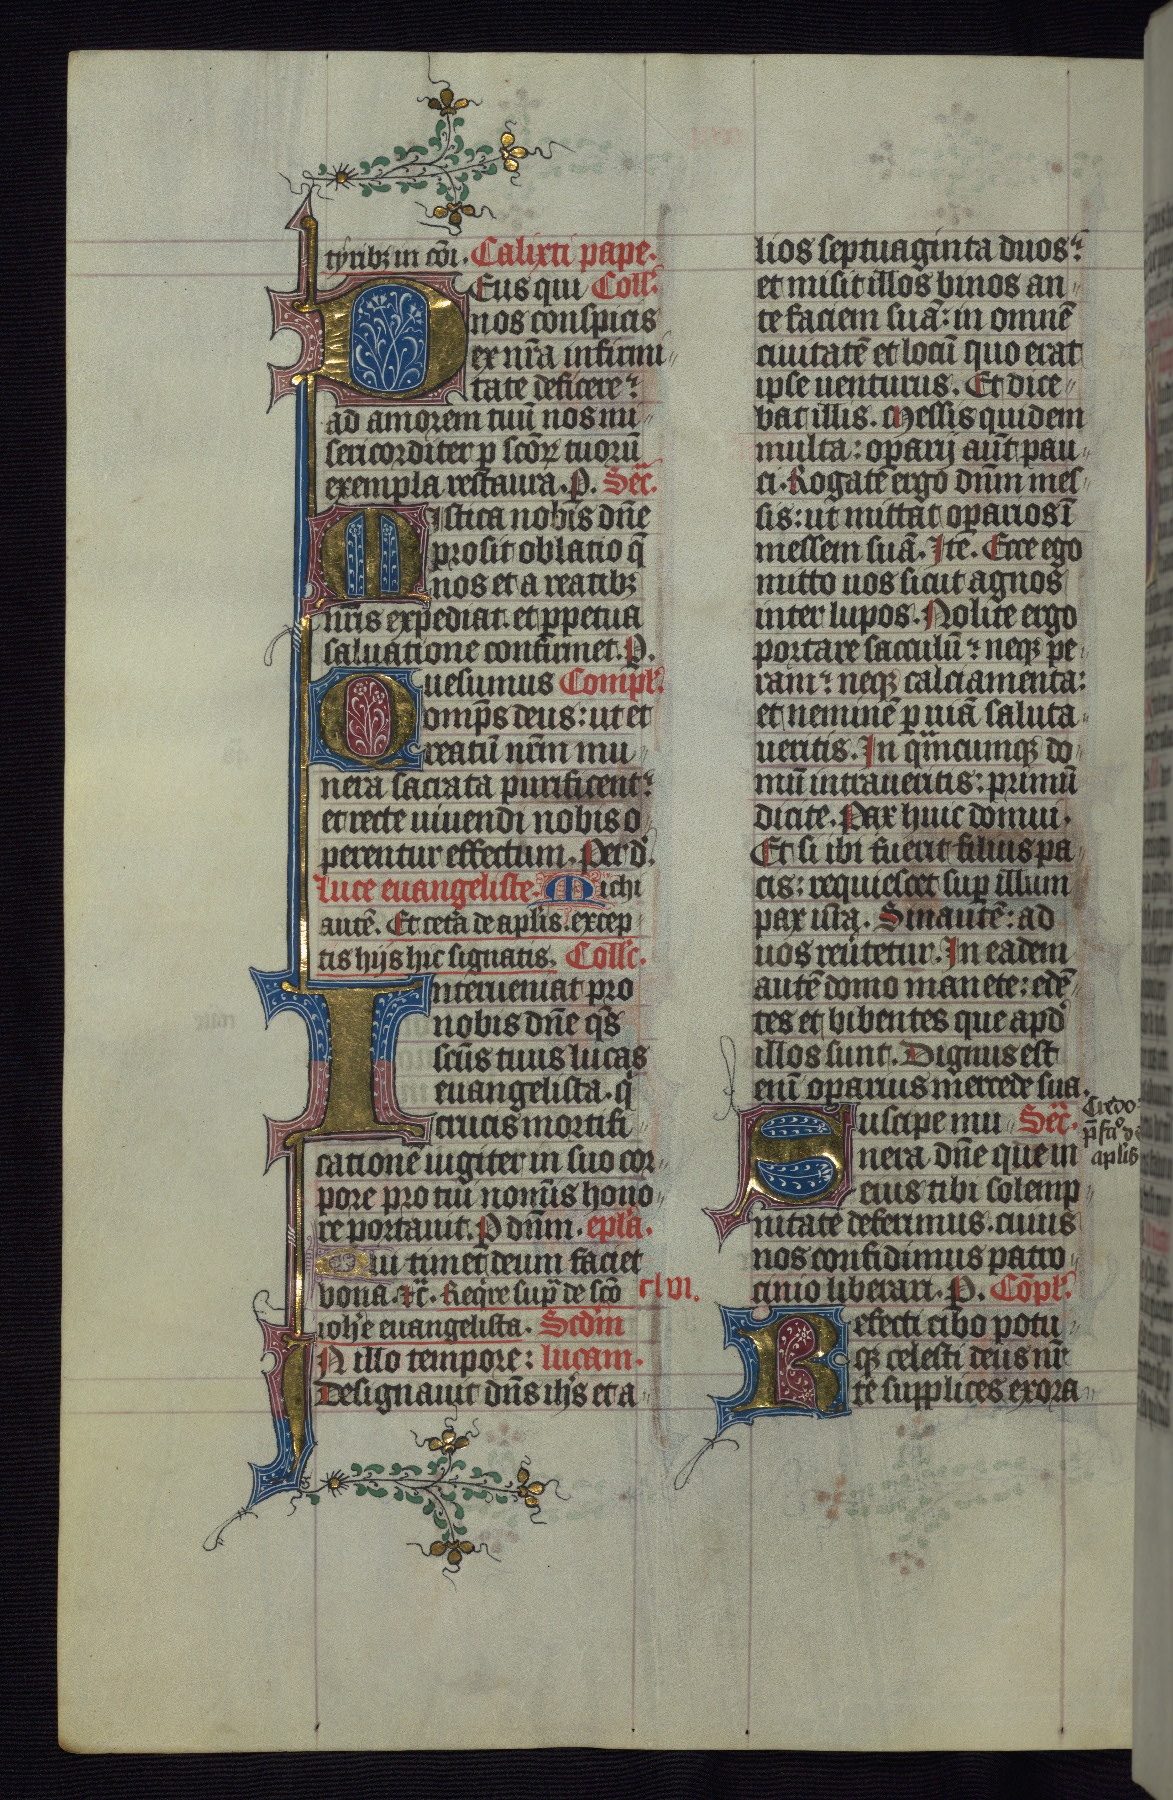 tyribꝫ in cōi. Calixti pape.
Deus qui Coll'.
nos conspicis
ex nr̄a infirmi
tate deficere:
ad amorem tuū nos mi
sericorditer ꝑ scōꝝ tuorū
exempla restaura. P. Secr̄.
Mistica nobis dn̄e
prosit oblatio q̄
nos et a reatibꝫ
nrīs expediat. et ꝑpetua
saluatione confirmet. P.
Quesumus Compl'.
omp̄s deus: ut et
reatū nr̄m mu
nera sacrata purificent:
et recte uiuendi nobis o
perentur effectum. Per d'.
Luce euangeliste. Michi
autē. Et cetā de apl'is. excep
tis hijs hic signatis. Coll'c.
Interueniat pro
nobis dn̄e q̄s
scūs tuus lucas
euangelista. q'
crucis mortifi
catione iugiter in suo cor
pore pro tui nom̄is hono
re portauit. P dn̄m. ep̄la.
Qui timet deum faciet
bona. ⁊c̄. Req̄re sup̄ de scō clvi.
ioh'e euangelista. Scdm̄
IN illo tempore: lucam.
Designauit dn̄s ih's et a
lios septuaginta duos:
et misit illos binos an
te faciem suā: in omnē
ciuitatē et locū quo erat
ipse uenturus. Et dice
bat illis. Messis quidem
multa: operarij aūt pau
ci. Rogate ergo dn̄m mes
sis: ut mittat operarios ī
messem suā. Itē. Ecce ego
mitto uos sicut agnos
inter lupos. Nolite ergo
portare sacculū: neqꝫ pe
ram: neqꝫ calciamenta:
et neminē ꝑ uiā saluta
ueritis. In q̄mcumqꝫ do
mū intraueritis: primū
dicite. Pax huic domui.
Et si ibi fuerit filius pa
cis: requiescet suꝑ illum
pax ur̄a. Sinautē: ad
uos reūtetur. In eadem
autē domo manete: edē
tes et bibentes que apd'
illos sunt. Dignus est
enī operarius mercede sua.
Suscipe mu Secr̄.
nera dn̄e que in
eius tibi solemp
nitate deferimus. cuius
nos confidimus patro
cinio liberari. P. Cōpl'.
Refecti cibo potu
qꝫ celesti deus nr̄
te supplices exora
Credo.
p̄fatō de
apl'is